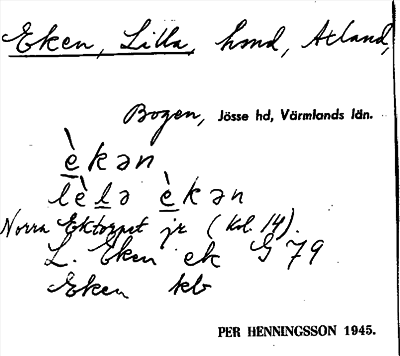 Eken, Lilla, hmd, Atland,
Bogen, Jösse hd, Värmlands län.
è̱kən
lèl̲ə è̱kən
Norra Ektorpet jr (kol. 14).
L. Eken ek G 79
Eken kb
PER HENNINGSSON 1945.